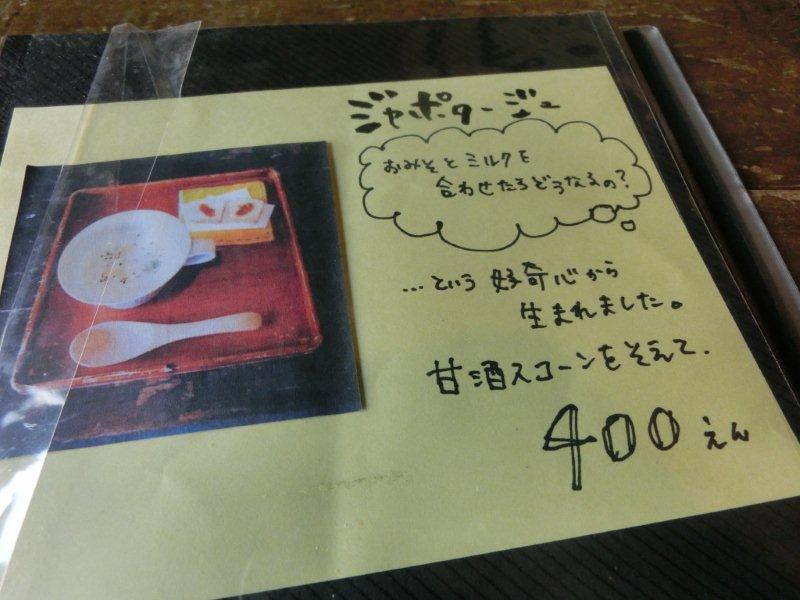 ジャポタージュ
おみそとミルクを
合わせたらどうなるの?
…という好奇心から
生まれました。
甘酒スコーンをそえて.
400えん